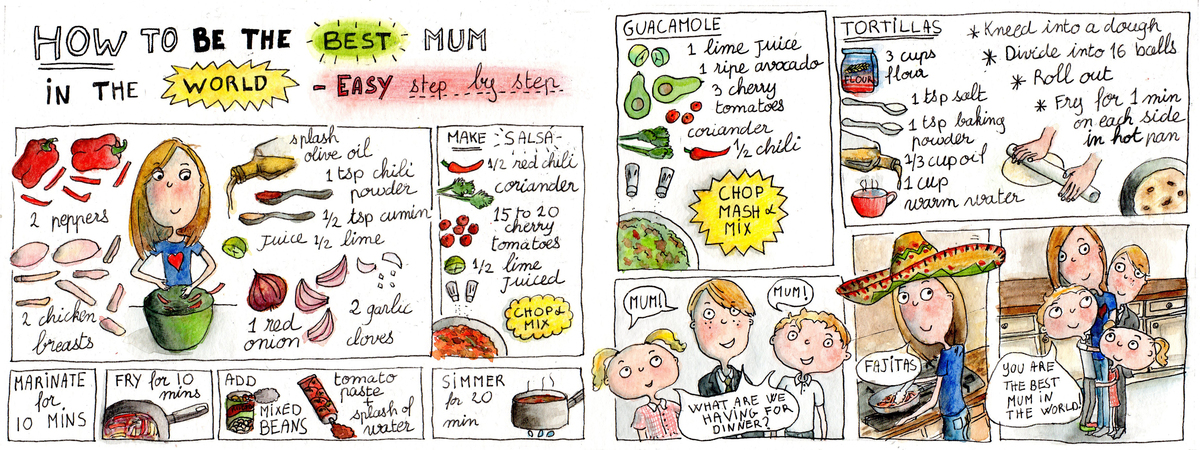 HOW TO BE THE BEST MUM
IN THE WORLD - EASY step by step
2 peppers
2 chicken
breasts
splash
olive oil
1 tsp chili
powder
1/2 tsp cumin
juice 1/2 lime
1 red
onion
2 garlic
cloves
MAKE SALSA
1/2 red chili
coriander
15 to 20
cherry
tomatoes
1/2 lime
juiced
CHOP &
MIX
MARINATE
for
10 MINS
FRY for 10
mins
ADD
MIXED
BEANS
tomato
paste
+
splash of
water
SIMMER
for 20
min
GUACAMOLE
1 lime juice
1 ripe avocado
3 cherry
tomatoes
coriander
1/2 chili
CHOP
MASH &
MIX
TORTILLAS
3 cups
flour
FLOUR
1 tsp salt
1 tsp baking
powder
1/3 cup oil
1 cup
warm water
* Kneed into a dough
* Divide into 16 balls
* Roll out
* Fry for 1 min
on each side
in hot pan
MUM!
MUM!
WHAT ARE WE
HAVING FOR
DINNER?
FAJITAS
YOU ARE
THE BEST
MUM IN
THE WORLD!